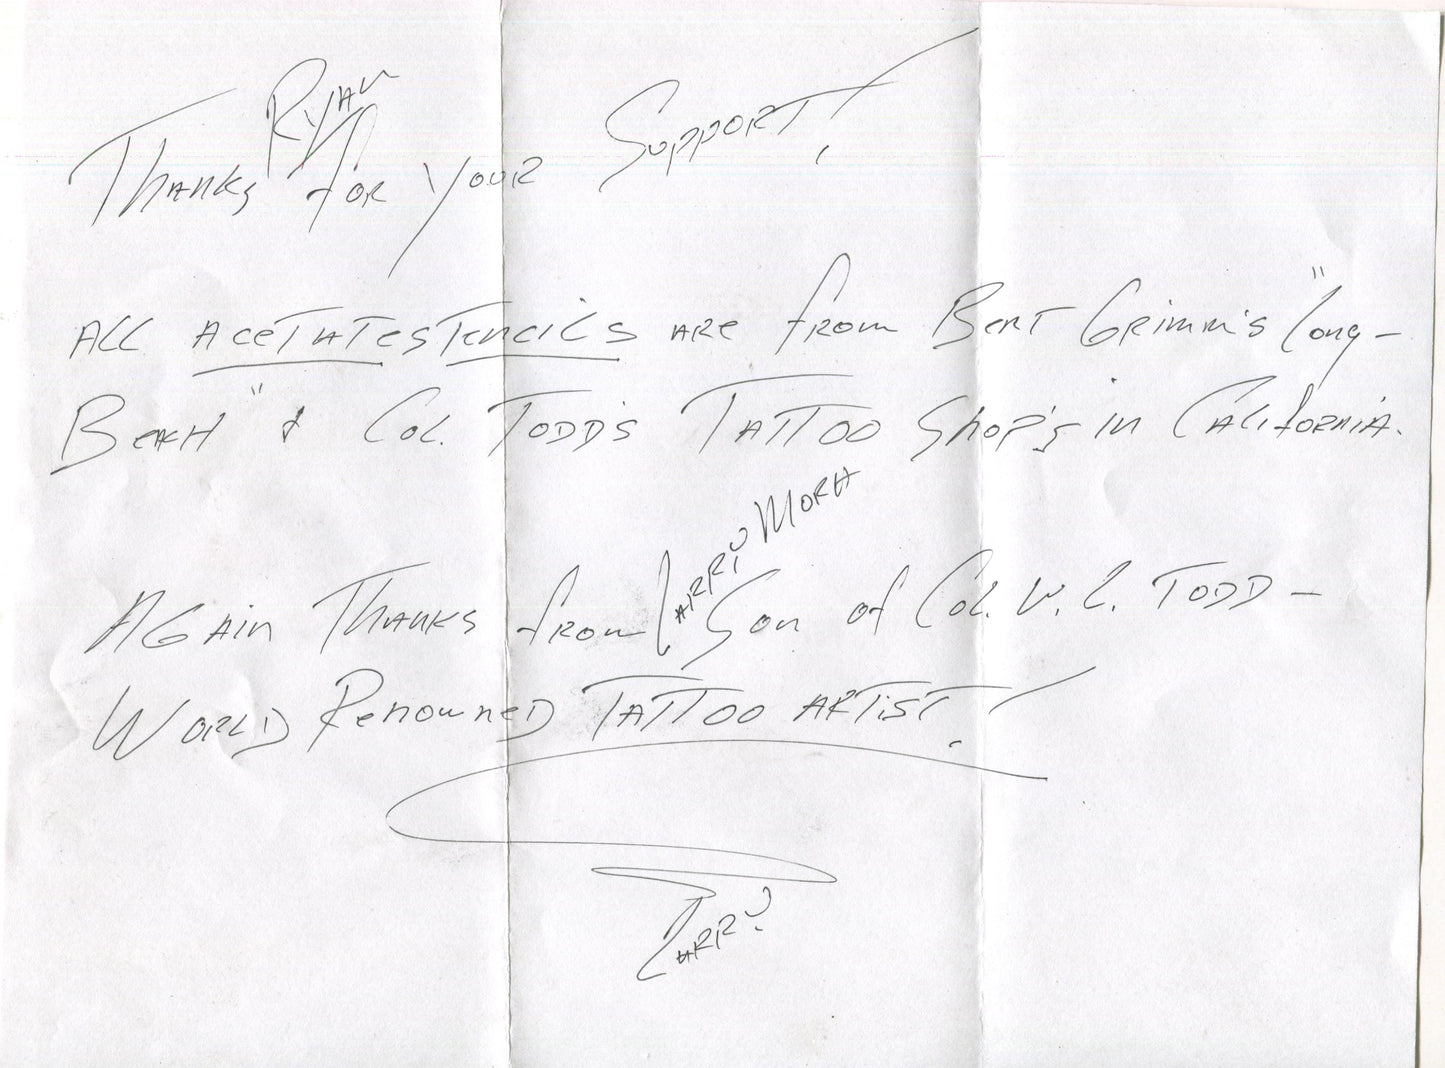 Ryan
Thanks for your Support!
All acetate stencils are from Bert Grimm's "Long-
Beach" & Col. Todd's Tattoo Shop's in California.
Again Thanks from Larry Mora Son of Col. W. L. Todd -
World Renowned Tattoo Artist!
Larry